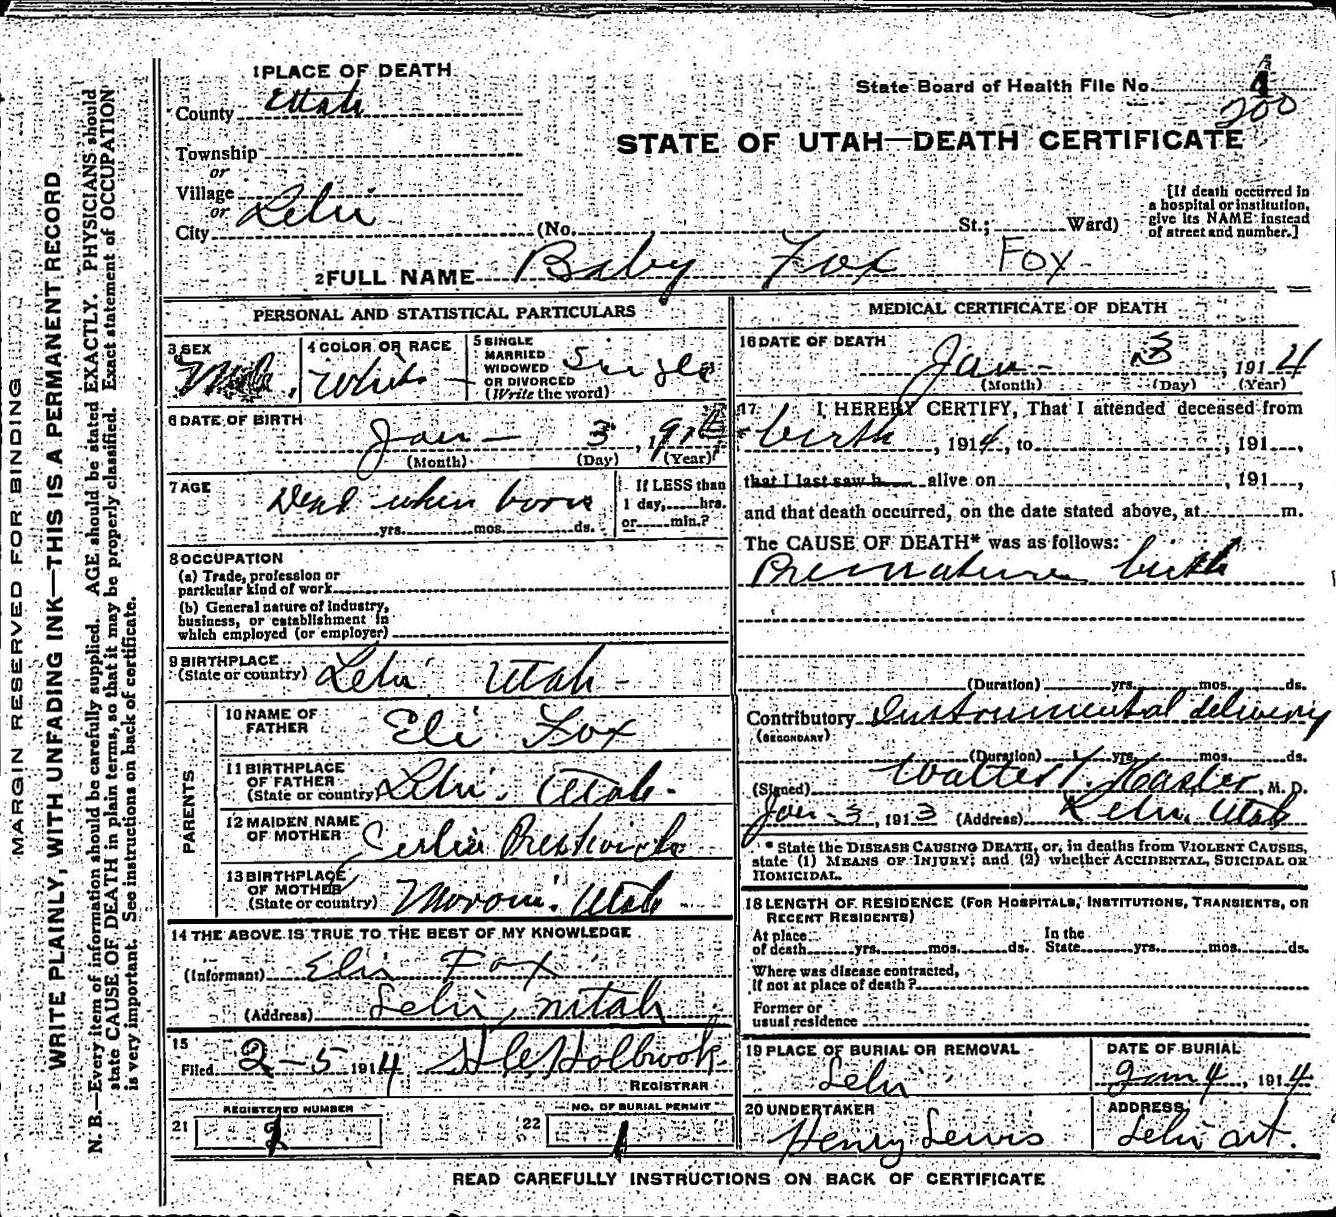 1 PLACE OF DEATH
County Utah
State Board of Health File No. 4
200
STATE OF UTAH—DEATH CERTIFICATE
Township
or
Village
or
City Lehi (No. St.; Ward)
[If death occurred in
a hospital or institution,
give its NAME instead
of street and number.]
2 FULL NAME Baby Fox Fox
PERSONAL AND STATISTICAL PARTICULARS
3 SEX Male
4 COLOR OR RACE White
5 SINGLE
MARRIED
WIDOWED
OR DIVORCED
(Write the word)
Single
6 DATE OF BIRTH
Jan 3, 1914
(Month) (Day) (Year)
7 AGE
Dead when born
yrs. mos. ds.
If LESS than
1 day, hrs.
or min.?
8 OCCUPATION
(a) Trade, profession or
particular kind of work
(b) General nature of industry,
business, or establishment in
which employed (or employer)
9 BIRTHPLACE
(State or country) Lehi Utah
PARENTS
10 NAME OF
FATHER Eli Fox
11 BIRTHPLACE
OF FATHER
(State or country) Lehi, Utah.
12 MAIDEN NAME
OF MOTHER Prestwich
13 BIRTHPLACE
OF MOTHER
(State or country) Moroni, Utah
14 THE ABOVE IS TRUE TO THE BEST OF MY KNOWLEDGE
(Informant) Eli Fox
(Address) Lehi,
15
Filed 2-5 1914 Holbrook
REGISTRAR
REGISTERED NUMBER
21 2
NO. OF BURIAL PERMIT
22 1
MEDICAL CERTIFICATE OF DEATH
16 DATE OF DEATH
Jan 3, 1914
(Month) (Day) (Year)
17 I HEREBY CERTIFY, That I attended deceased from
birth, 1914, to , 191 ,
that I last saw h alive on , 191 ,
and that death occurred, on the date stated above, at m.
The CAUSE OF DEATH* was as follows:
Premature birth
(Duration) yrs. mos. ds.
Contributory Instrumental delivery
(SECONDARY)
(Duration) yrs. mos. ds.
(Signed) Walter T. Hasler, M. D.
Jan 3, 1913 (Address) Lehi Utah
* State the DISEASE CAUSING DEATH, or, in deaths from VIOLENT CAUSES,
state (1) MEANS OF INJURY; and (2) whether ACCIDENTAL, SUICIDAL OR
HOMICIDAL.
18 LENGTH OF RESIDENCE (FOR HOSPITALS, INSTITUTIONS, TRANSIENTS, OR
RECENT RESIDENTS)
At place
of death yrs. mos. ds.
In the
State yrs. mos. ds.
Where was disease contracted,
if not at place of death?
Former or
usual residence
19 PLACE OF BURIAL OR REMOVAL
Lehi
DATE OF BURIAL
Jan 4, 1914
20 UNDERTAKER
Henry Lewis
ADDRESS
Lehi
READ CAREFULLY INSTRUCTIONS ON BACK OF CERTIFICATE
MARGIN RESERVED FOR BINDING
WRITE PLAINLY, WITH UNFADING INK—THIS IS A PERMANENT RECORD
N. B.—Every item of information should be carefully supplied. AGE should be stated EXACTLY. PHYSICIANS should
state CAUSE OF DEATH in plain terms, so that it may be properly classified. Exact statement of OCCUPATION
is very important. See instructions on back of certificate.